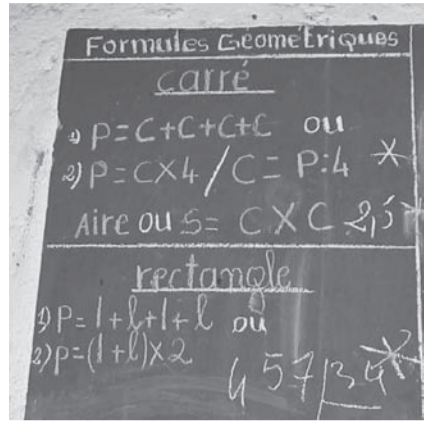 Formules Géométriques
carré
1) P=C+C+C+C ou
2) P=C×4/C=P:4
Aire ou S= C×C 2,5
rectangle
1) P=l+l+l+l ou
2) P=(l+l)×2
457 34